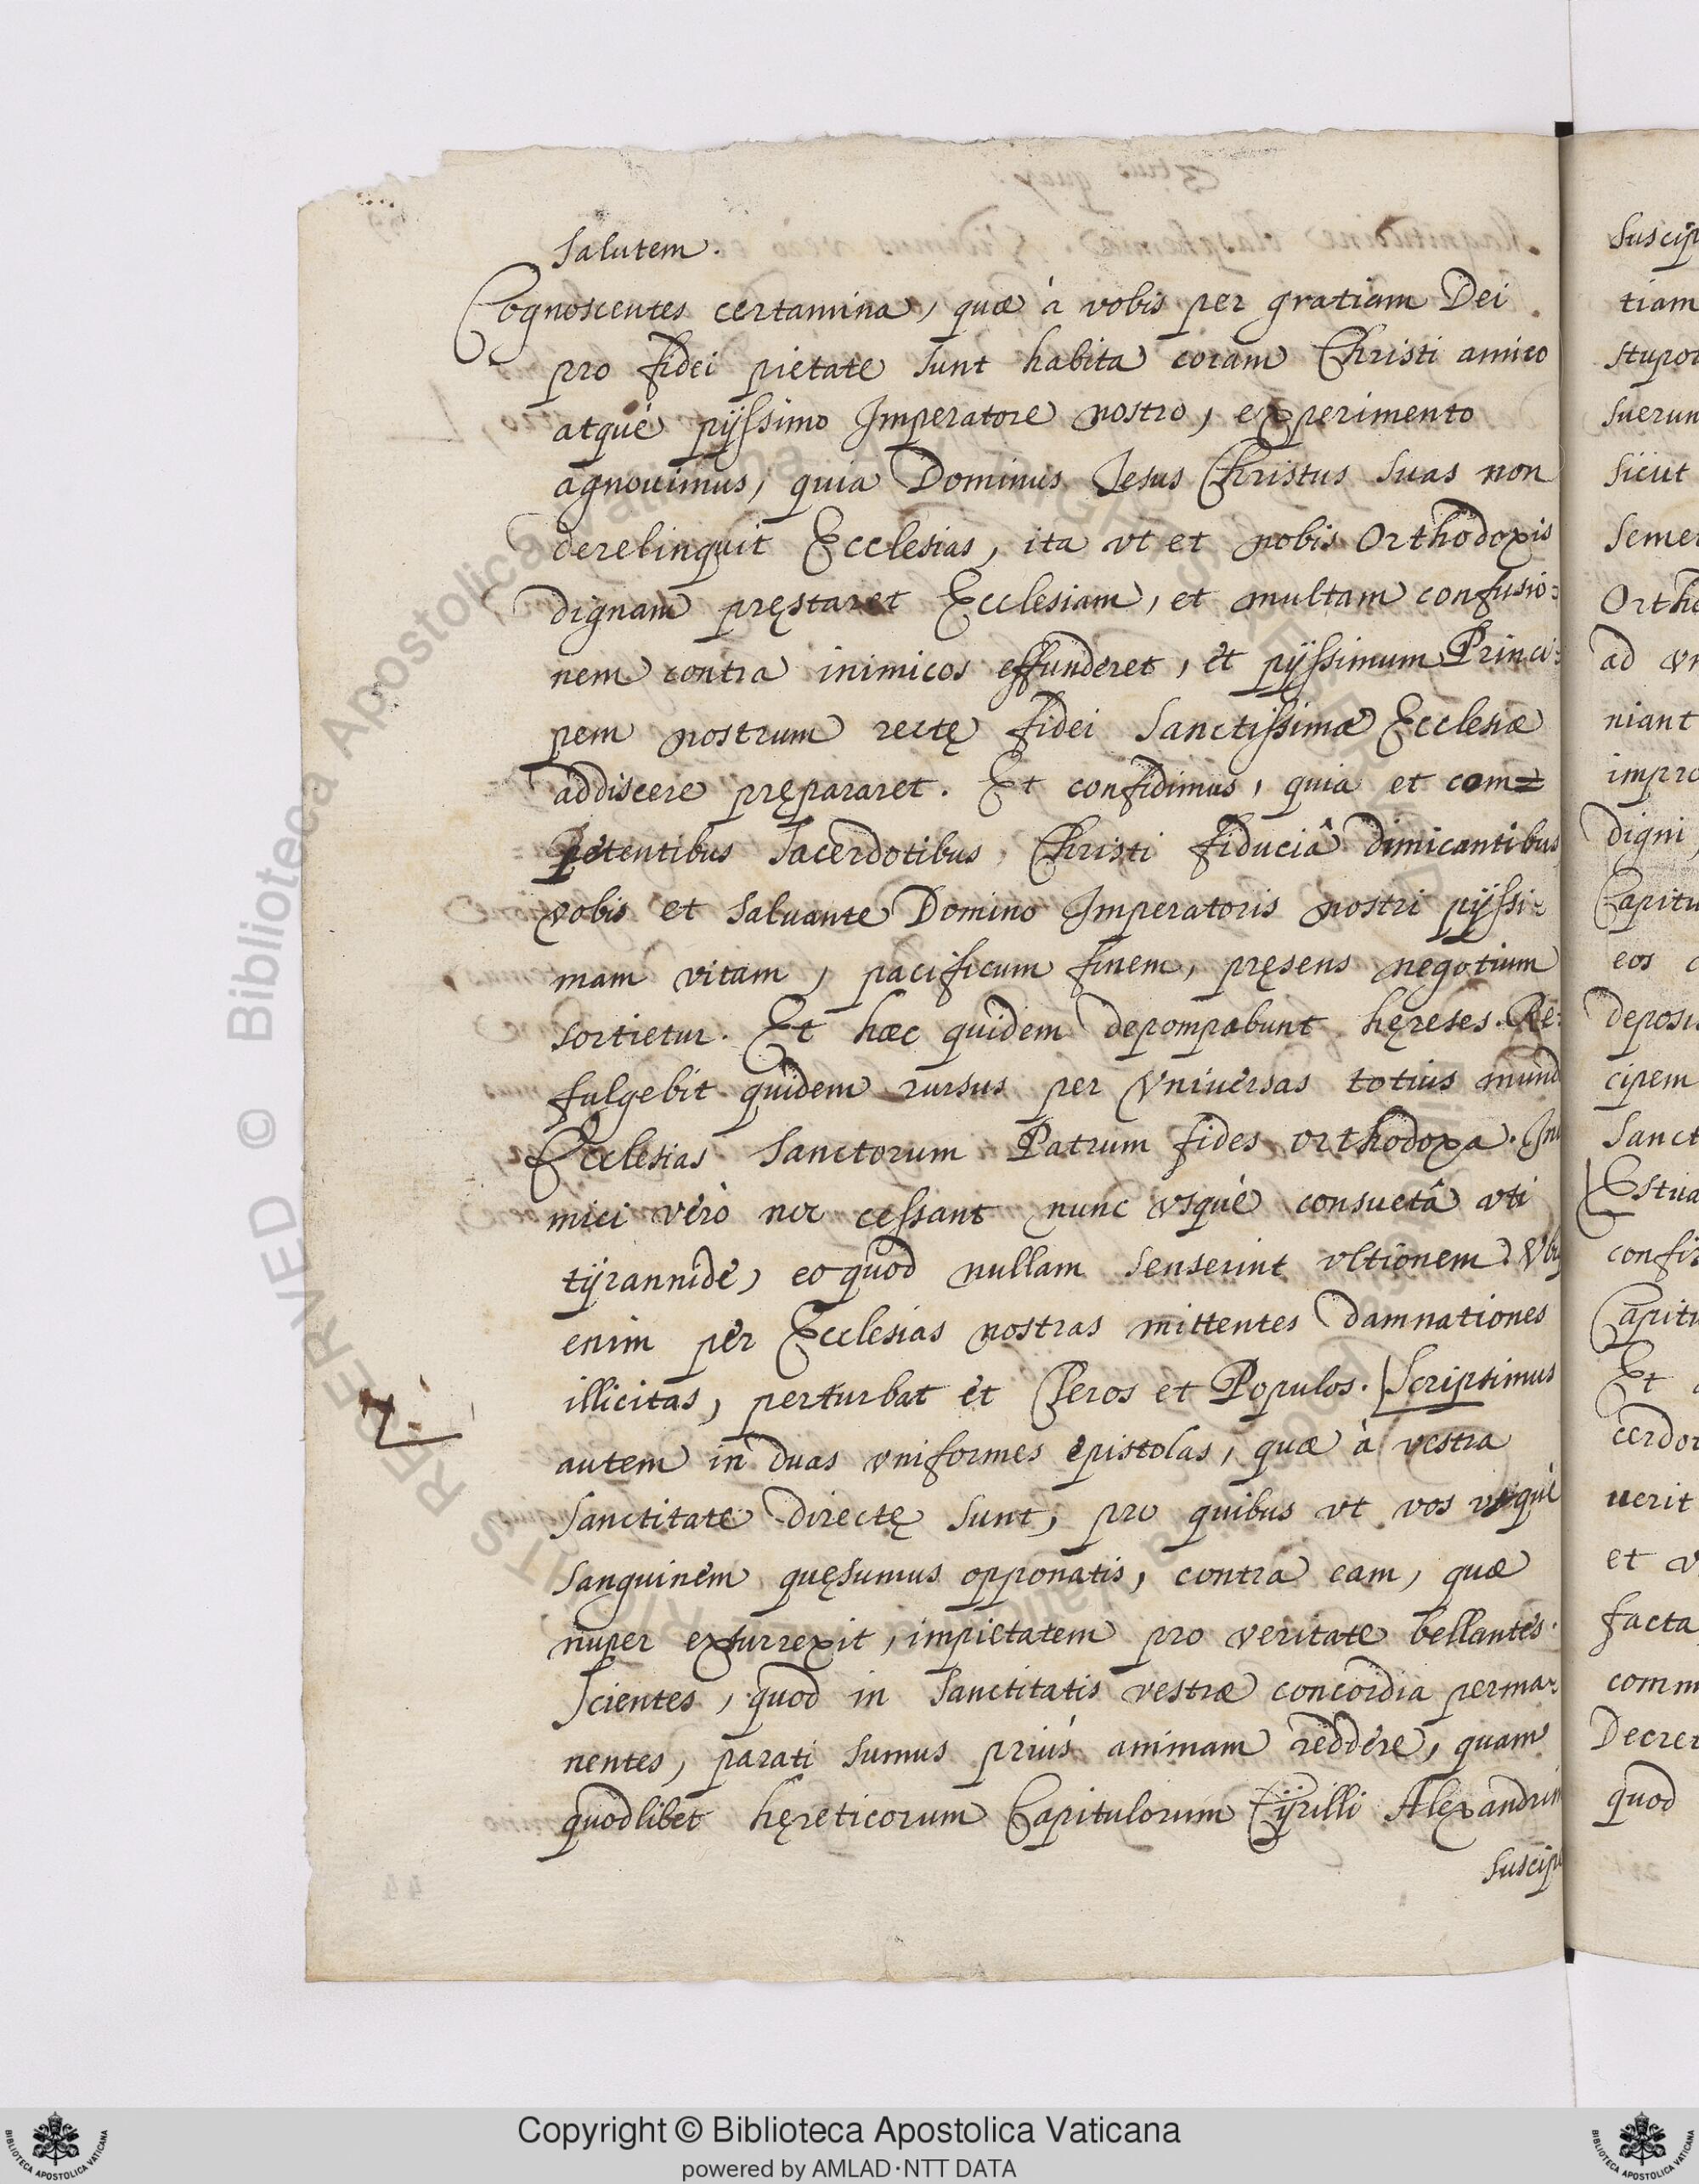 Salutem.
Cognoscentes certamina, quæ à vobis per gratiam Dei
pro fidei pietate sunt habita coram Christi amico
atque pijssimo Imperatore nostro, experimento
agnouimus, quia Dominus Jesus Christus suas non
derelinquit Ecclesias, ita vt et nobis Orthodoxis
dignam pręstaret Ecclesiam, et multam confusio:
nem contra inimicos effunderet, et pijssimum Princi:
pem nostrum rectę fidei Sanctissimæ Ecclesiæ
addiscere prępararet. Et confidimus, quia et com=
petentibus Sacerdotibus Christi fiduciâ dimicantibus
vobis et saluante Domino Imperatoris nostri pijssi-
mam vitam, pacificum finem, pręsens negotium
sortietur. Et hæc quidem depompabunt hęreses. Re:
fulgebit quidem rursus per Vniuersas totius mund
Ecclesias Sanctorum Patrum fides orthodoxa. Ini
mici verò nec cessant nunc vsque consuetâ vti
tÿrannide, eo quod nullam senserint vltionem. Vbiq
enim per Ecclesias nostras mittentes damnationes
illicitas, perturbat et Cleros et Populos. Scripsimus
autem in duas vniformes epistolas, quæ à vestra
Sanctitate directę sunt, pro quibus vt vos vsque
sanguinem quęsumus opponatis, contra eam, quæ
nuper exsurrexit, impietatem pro veritate bellantes.
Scientes, quod in Sanctitatis vestræ concordia perma-
nentes, parati sumus priùs animam reddere, quam
quodlibet hęreticorum Capitulorum Cÿrilli Alexandrin
suscipe
Suscip
tiam
stupor
suerun
sicut
semer
Ortho
ad vn
niant
impro
digni,
Capitu
eos
deposi
cipem
Sanct
Estua
confir
Capitu
Et
cerdor
uerit
et v
facta
comm
Decrer
quod
© Biblioteca Apostolica Vaticana
ALL RIGHTS RESERVED
Copyright © Biblioteca Apostolica Vaticana
powered by AMLAD·NTT DATA
BIBLIOTECA APOSTOLICA VATICANA
BIBLIOTECA APOSTOLICA VATICANA